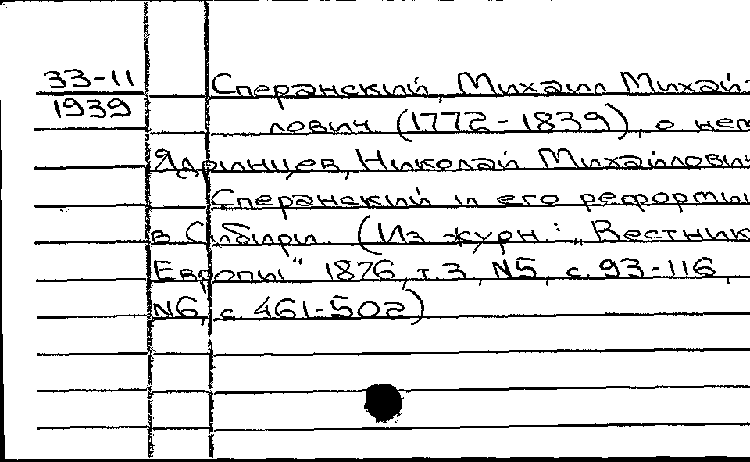 33-11 Сперанский, Михаил Михай-
1939 лович (1772-1839), о нем
Ядринцев, Николай Михайлович
Сперанский и его реформы
в Сибири. (Из журн.: "Вестник
Европы" 1876, т.3, N5, с. 93-116,
N6, с. 461-502)